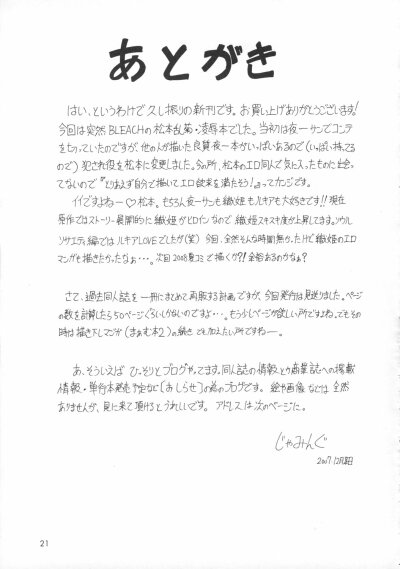 あとがき
はい、というわけで久し振りの新刊です。お買い上げありがとうございます!
今回は突然BLEACHの松本乱菊・凌辱本でした。当初は夜一サンでコンテ
をもっていたのですが、他の人が描いた良質夜一本がいっぱいあるので(いっぱい持ってる
ので)犯され役を松本に変更しました。今の所、松本のエロ同人で気に入ったものに出会
てないので『とりあえず自分で描いてエロ欲求を満たそう!』ってカンジです。
イイですよねー♡松本。もちろん夜一サンも織姫もルキアも大好きです!!現在
原作ではストーリー展開的に織姫がヒロインなので織姫スキスキ度が上昇してます。ソウル
ソサエティ編ではルキアLOVEでしたが(笑)今回、全然そんな時間無かったけど織姫のエロ
マンガも描きたかったなぁ…。次回2008夏コミで描くか?!余裕あるのかなぁ?
さて、過去同人誌を一冊にまとめて再販する計画ですが、今回発行は見送りました。ページ
の数を計算したら50ページぐらいしかないのですよ…。もう少しページが欲しい所ですよね。でもその
時は描き下し(まぁむ本2)の続きでも加えたい所ですねー。
あ、そういえばひっそりとブログやってます。同人誌の情報とか商業誌への掲載
情報・単行本発売予定など[おしらせ]の為のブログです。絵や画像などは全然
ありませんが、見に来て頂けるとうれしいです。アドレスは次のページに。
じゃみんぐ
2007.12月
21